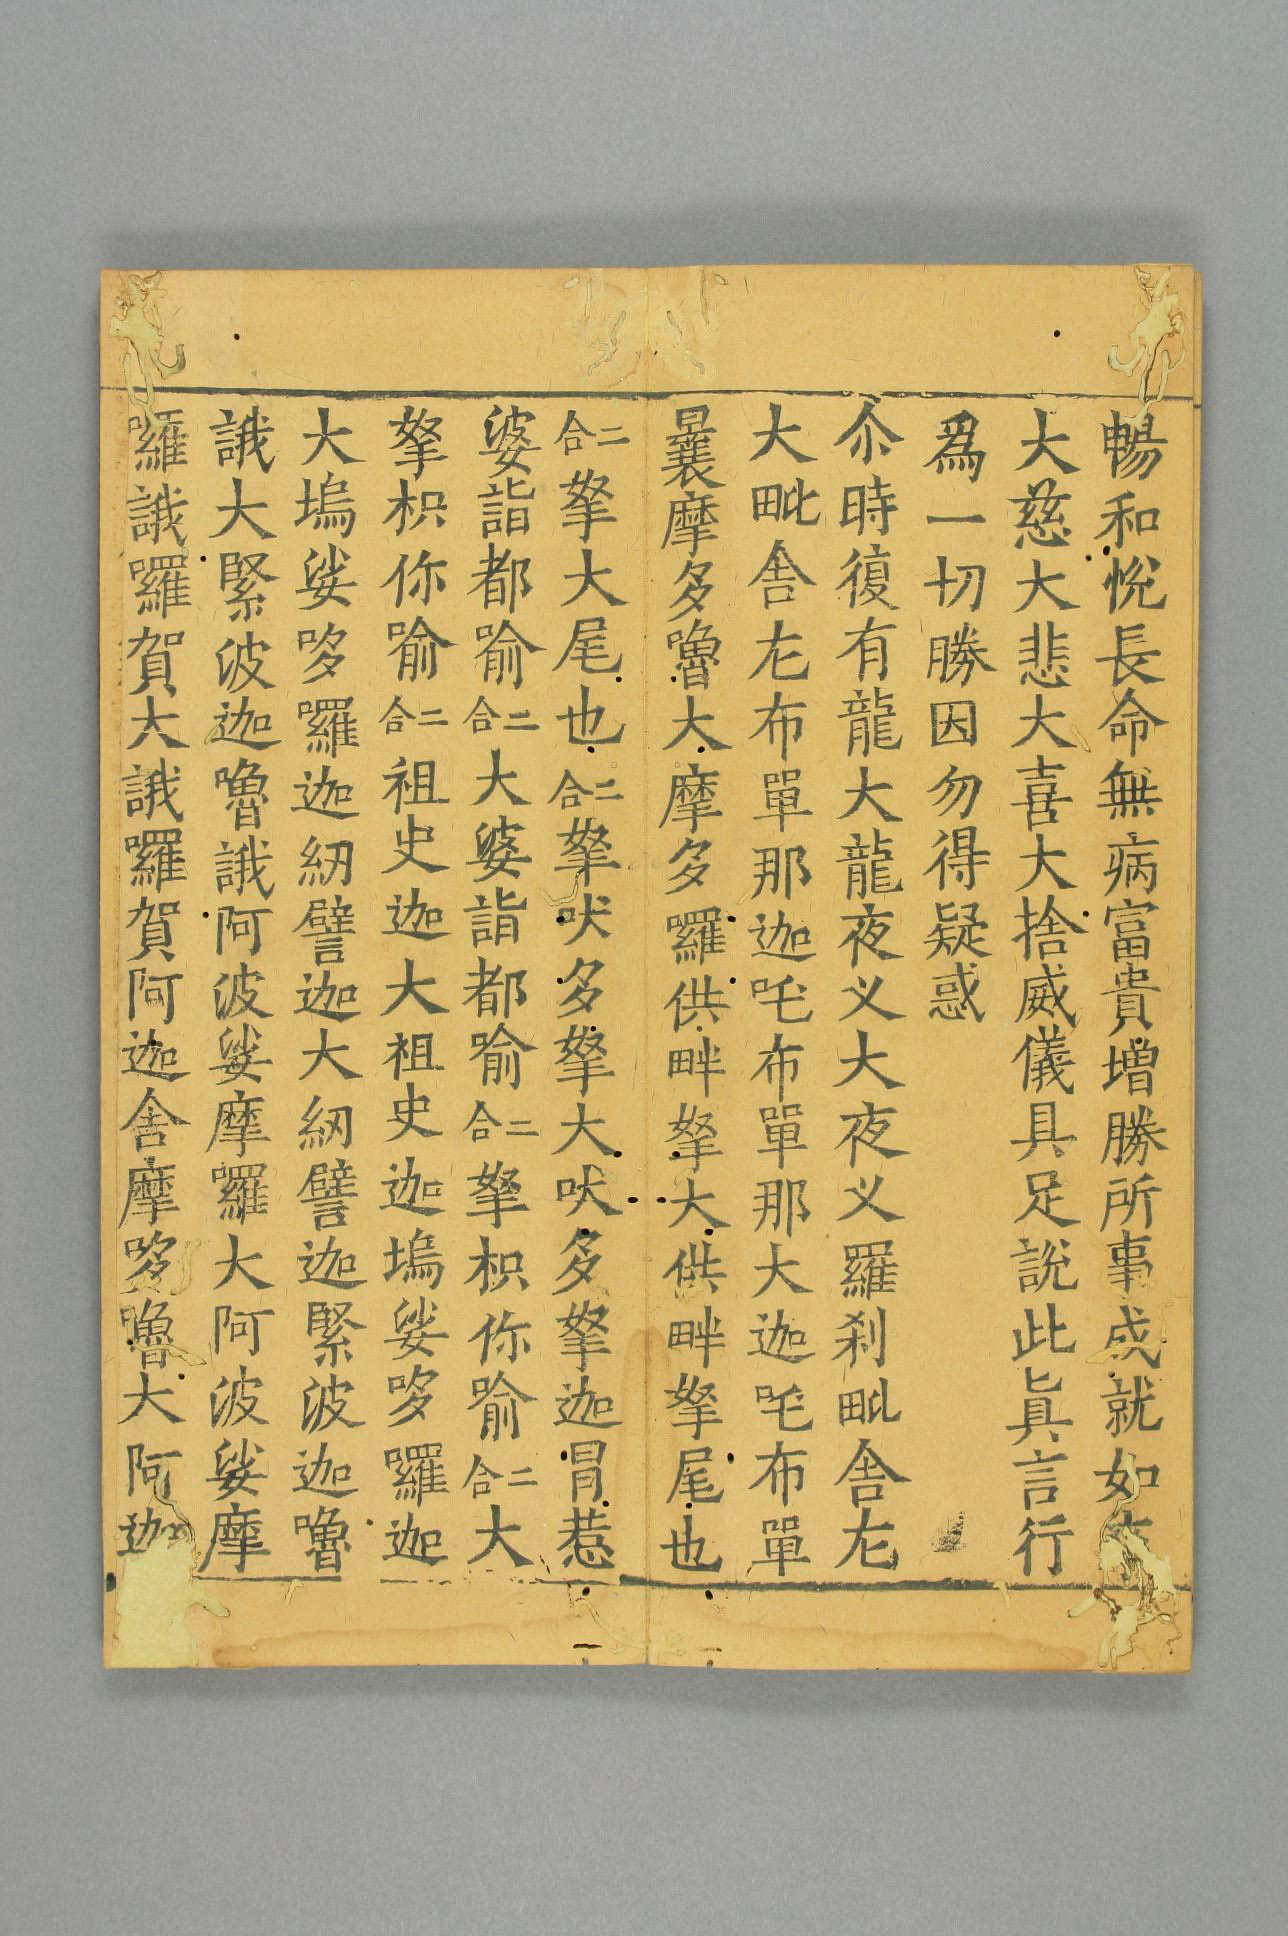 暢和恱長命無病富貴增勝所事成就如
大慈大悲大喜大捨威儀具足說此眞言行
爲一切勝因勿得疑惑
尒時復有龍大龍夜义大夜义羅刹毗舍左
大毗舍左布單那迦吒布單那大迦吒布單
曩摩多嚕大摩多囉供畔拏大供畔拏尾也
二合拏大尾也二合拏吠多拏大吠多拏迦冐惹
婆詣都喻二合大婆詣都喻二合拏枳你喻二合大
拏枳你喻二合祖史迦大祖史迦塢娑哆囉迦
大塢娑哆囉迦紉譬迦大紉譬迦緊波迦嚕
誐大緊波迦嚕誐阿波娑摩囉大阿波娑摩
囉誐囉賀大誐囉賀阿迦舍摩哆嚕大阿迦